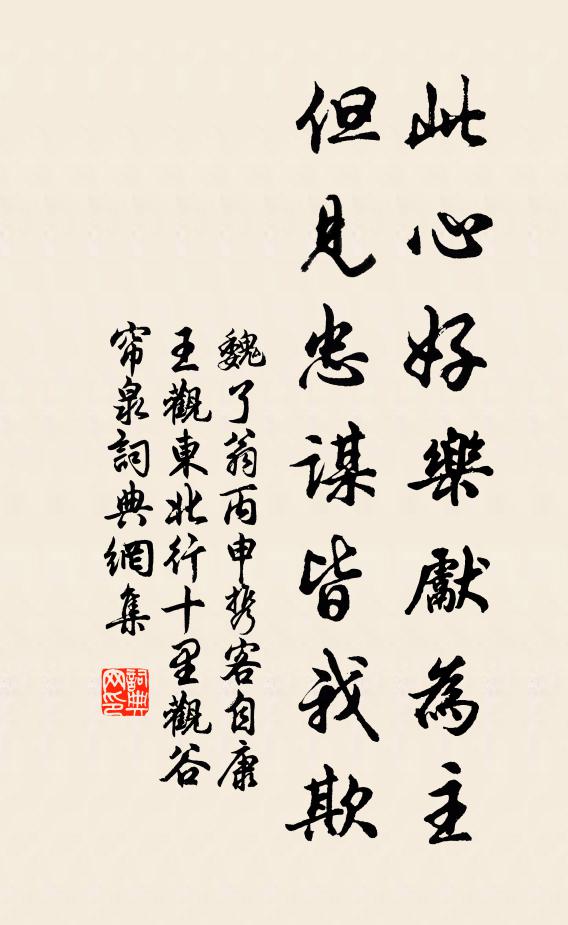 此心好樂獻為主
但見忠謀皆我欺
魏了翁丙申携客自康
王觀東北行十里觀谷
帘泉詞典網集
詞典网印